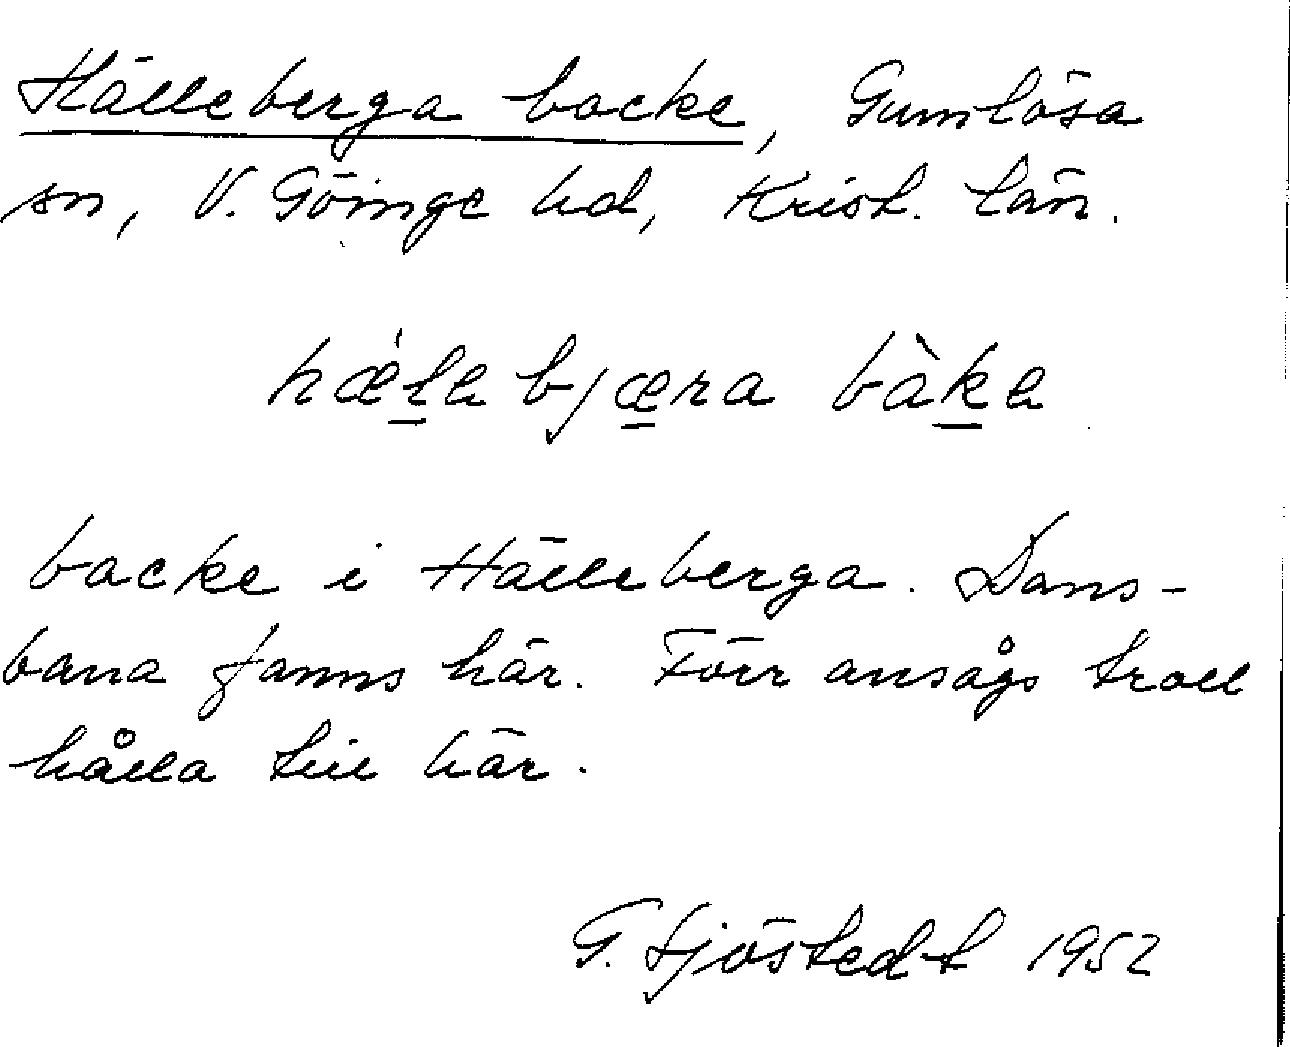 Hälleberga backe, Gumlösa
sn, V. Göinge hd, Krist. län.
hǽla bjæra bàka
backe i Hälleberga. Dans-
bana fanns här. Förr ansågs troll
hålla till här.
G. Sjöstedt 1952